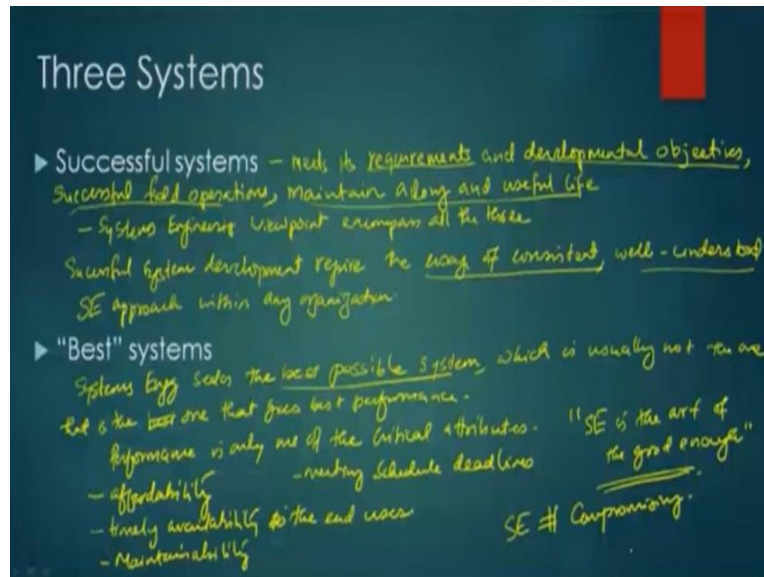 Three Systems
▶ Successful systems – meets its requirements and developmental objectives,
Successful field operations, maintain a long and useful life
– Systems Engineering viewpoint encompass all the three
Successful system development require the of consistent, well-understood
SE approach within any organization.
▶ "Best" systems
Systems Engg seeks the best possible system, which is usually not the one
that is the best one that gives best performance.
Performance is only one of the critical attributes.
– affordability
– meeting schedule deadlines
– timely availability to the end user
– Maintainability
"SE is the art of
the good enough"
SE # Compromising.